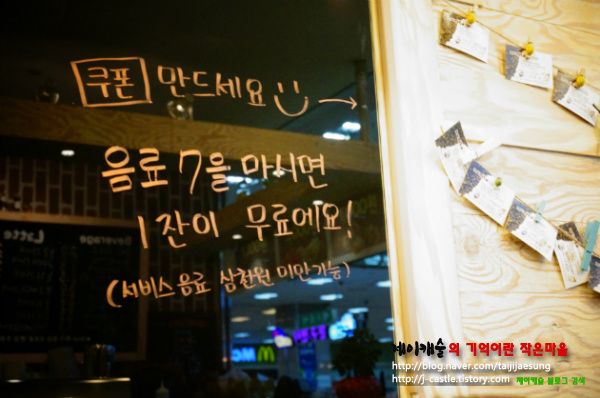 쿠폰 만드세요 →
음료 7을 마시면
1잔이 무료에요!
(서비스음료 삼천원 미만가능)
Beverage
Latte
제이캐슬의 기억이란 작은마을
http://blog.naver.com/taijijaesung
http://j-castle.tistory.com 제이캐슬 블로그 검색